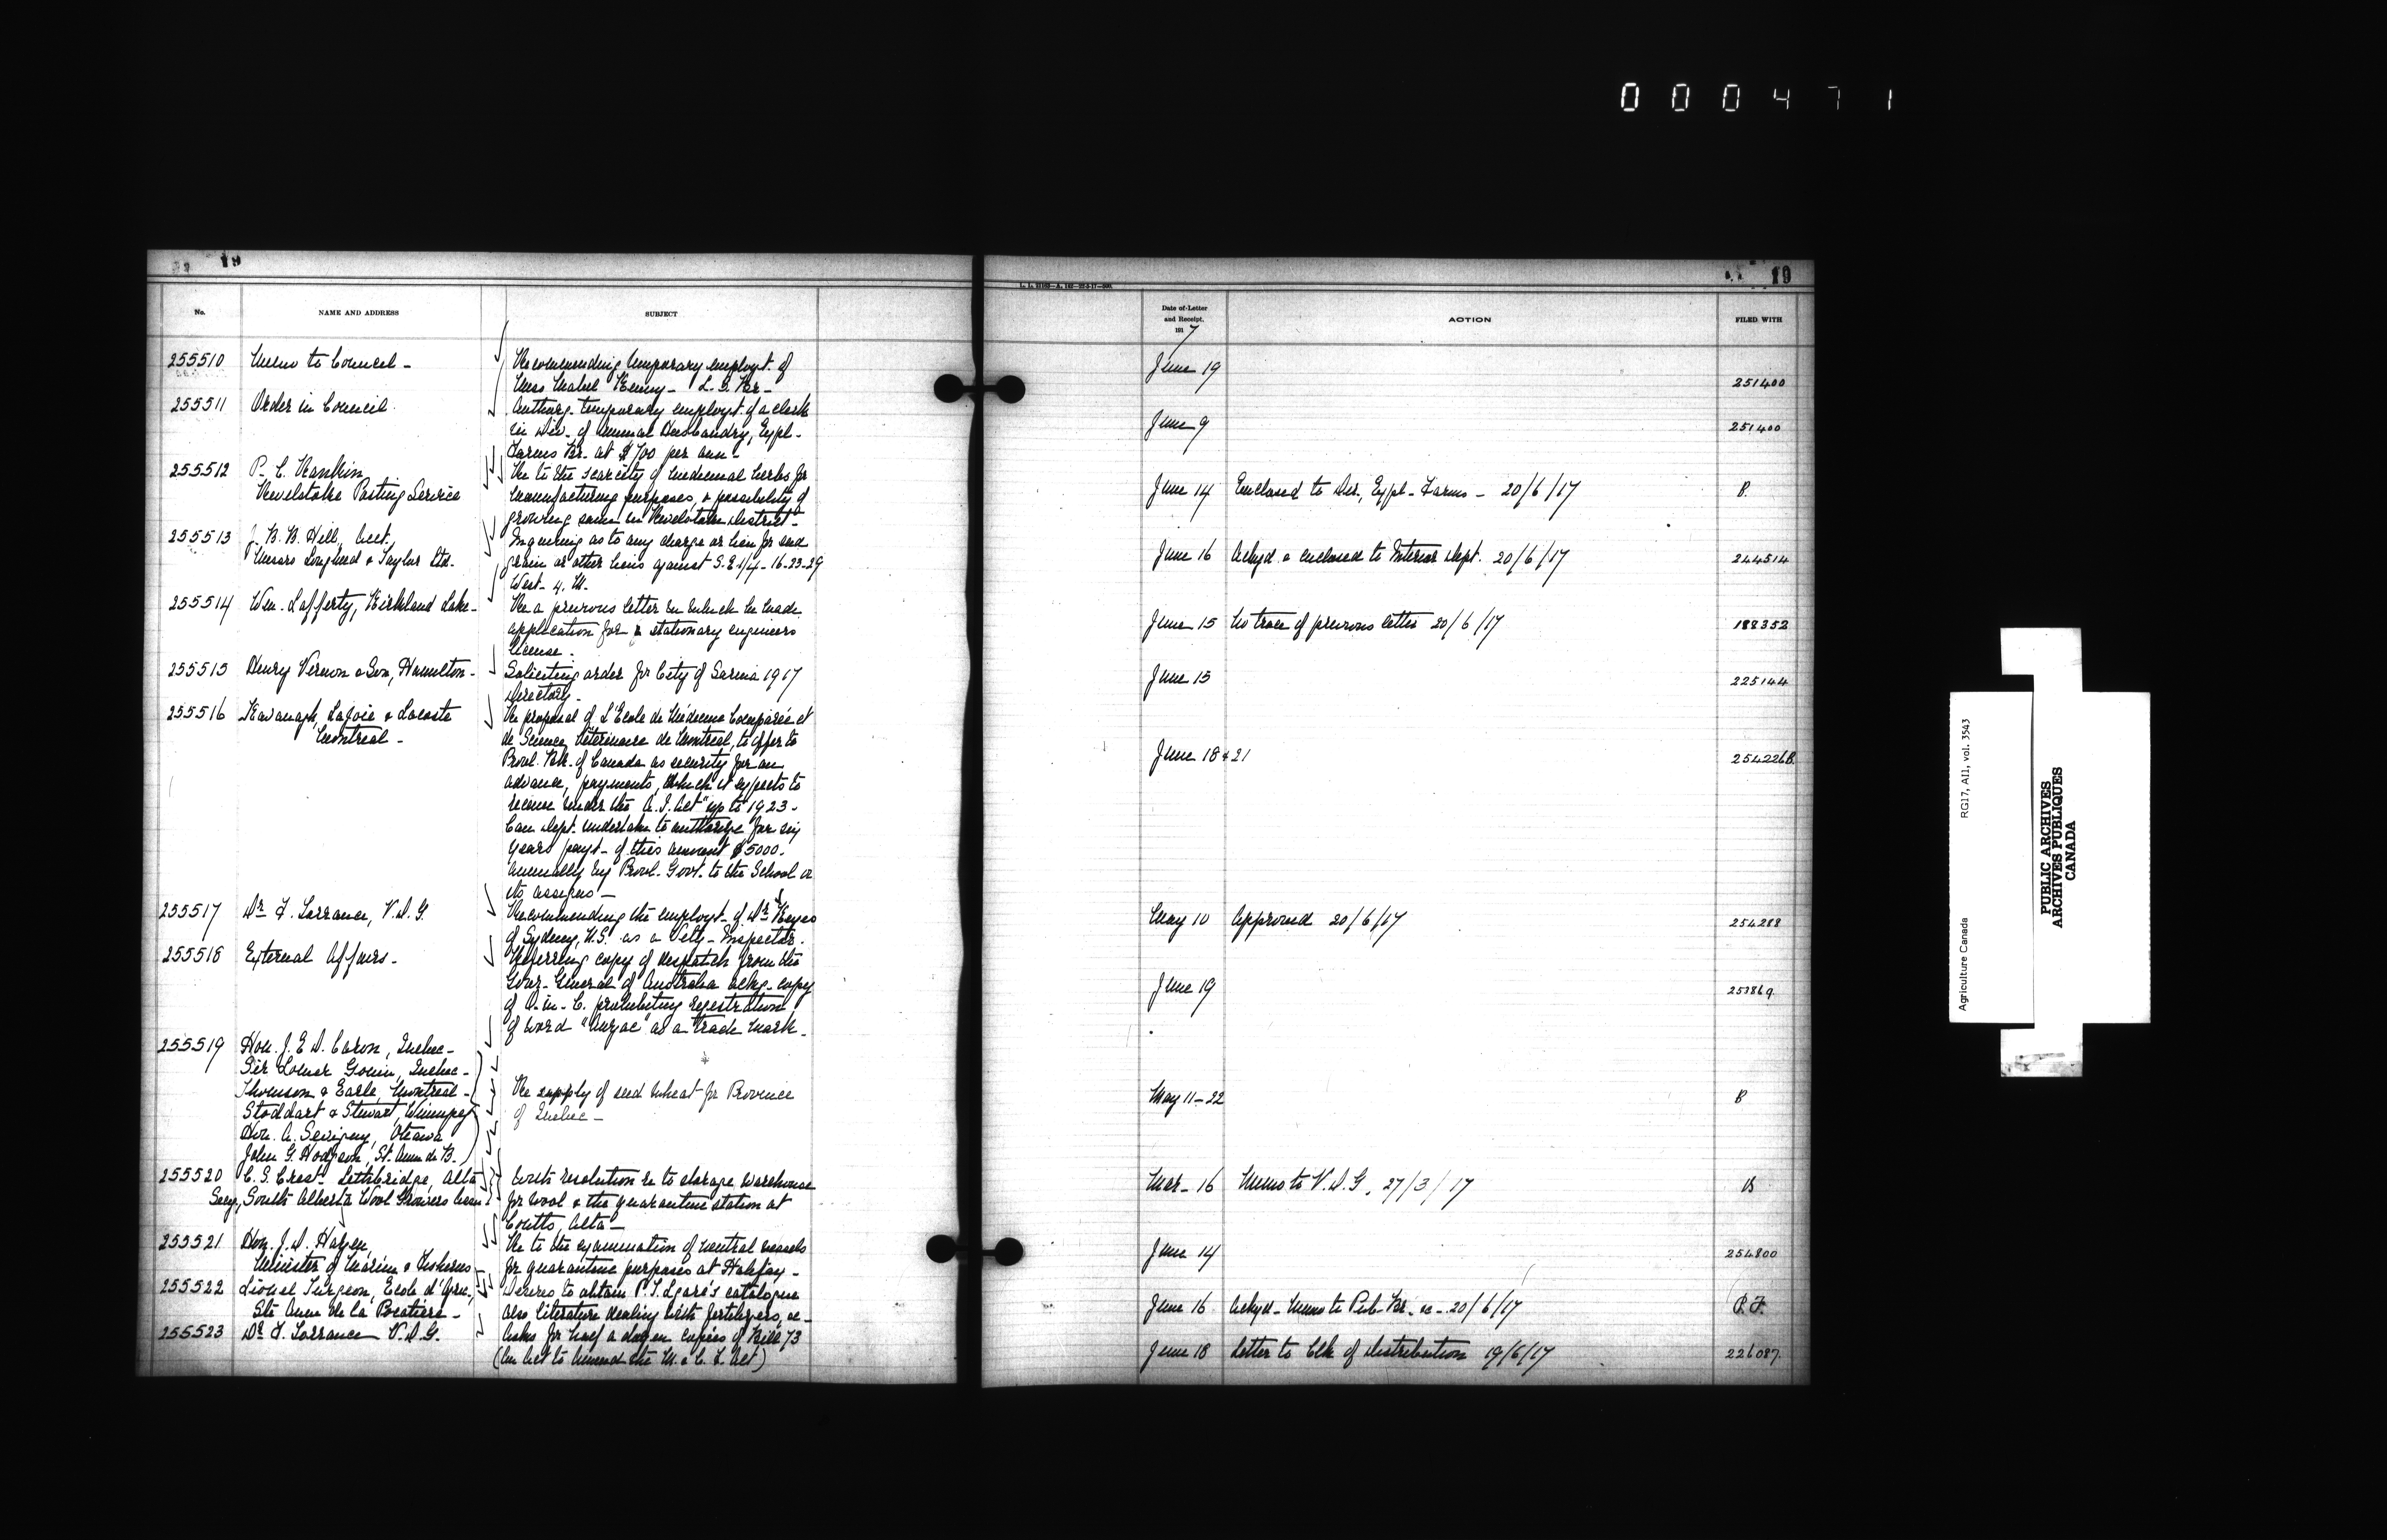 000471
19
No.
NAME AND ADDRESS
SUBJECT
255510 Memo to Council -
Recommending temporary employt. of
Miss Mabel Kenny -
255511 Order in Council.
Authorg. temporary employt. of a clerk
in Div. of Animal Husbandry, Expl.
Farms Br. at $700 per ann -
255512 P. C. Rankin
Revelstoke Pasting Service
Re to the scarcity of medicinal herbs for
manufacturing purposes, & possibility of
growing same in Revelstoke District -
255513 J. B. B. Hill, Acct.
Messrs Lougheed & Taylor Ltd.
Inquiring as to any charge or lien for seed
grain or other liens against S.E 1/4 - 16-23-29
West. 4. M.
255514 Wm. Lafferty, Kirkland Lake -
Re a previous letter in which he made
application for a stationary engineers
license -
255515 Henry Vernon & Son, Hamilton -
Soliciting order for City of Sarnia 1917
Directory -
255516 Kavanagh, Lajoie & Lacoste
Montreal -
Re proposal of L'Ecole de Médecine Comparée et
de Science Vétérinaire de Montreal, to offer to
Provl. Bk. of Canada as security for an
advance, payments, which it expects to
receive under the A.I. Act up to 1923 -
Can Dept. undertake to authorize for six
years payt. of this amount $5000 -
annually by Provl. Govt. to the School or
its assigns -
255517 Dr. F. Torrance, V.D.G.
Recommending the employt. of Dr. Keyes
of Sydney, N.S. as a Vety. Inspector.
255518 External Affairs -
Referring copy of despatch from the
Govr. General of Australia ackg. copy
of O. in. C. prohibiting registration
of word "Anzac" as a trade mark -
255519 Hon. J. E. D. Caron, Quebec -
Sir Lomer Gouin, Quebec -
Thomson & Earle, Montreal -
Stoddart & Stewart, Winnipeg
Hon. A. Sevigny, Ottawa
John G. Hodgson, St. Anne de B.
Re supply of seed wheat for Province
of Quebec -
255520 C. S. Crest - Lethbridge, Alta
Secy, South Alberta Wool Growers
With resolution re to storage warehouse
for wool & the quarantine station at
Coutts, Alta -
255521 Hon. J. D. Hazen,
Minister of Marine & Fisheries
Re to the examination of neutral vessels
for quarantine purposes at Halifax -
255522 Lionel Turgeon, Ecole d'Agric.,
Ste Anne de la Pocatiere -
Desires to obtain P. T. Legaré's catalogue
also literature dealing with fertilizers, &c -
255523 Dr. F. Torrance V.D.G.
Asks for half a dozen copies of Bill 73
(An Act to Amend the M. & C. F. Act)
19
Date of Letter
and Receipt.
1917
ACTION
FILED WITH
June 19 251400
June 9 251400
June 14 Enclosed to Dir., Expl. Farms - 20/6/17 B.
June 16 Ackgd & enclosed to Interior Dept. 20/6/17 244514
June 15 No trace of previous letter 20/6/17 188352
June 15 225144
June 18 & 21 254226B.
May 10 Approved 20/6/17 254288
June 19 253869
May 11-22 B
Mar - 16 Memo to V.D.G. 27/3/17 B
June 14 254800
June 16 Ackgd - Memo to Pub. Br. &c - 20/6/17 P.F.
June 18 Letter to Clk of Distribution 19/6/17 226087.
Agriculture Canada
RG17, AII, vol. 3543
PUBLIC ARCHIVES
ARCHIVES PUBLIQUES
CANADA